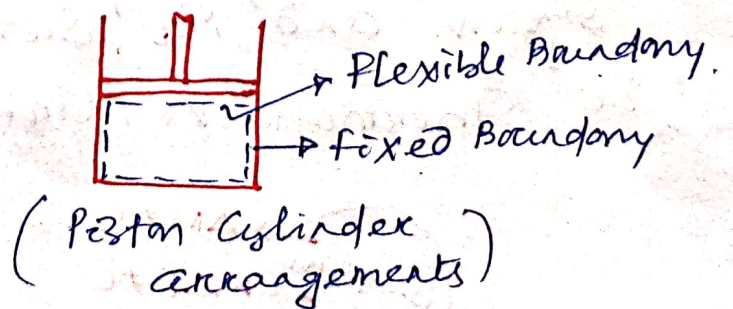 Flexible Boundary.
fixed Boundary
(Piston Cylinder
arrangements)